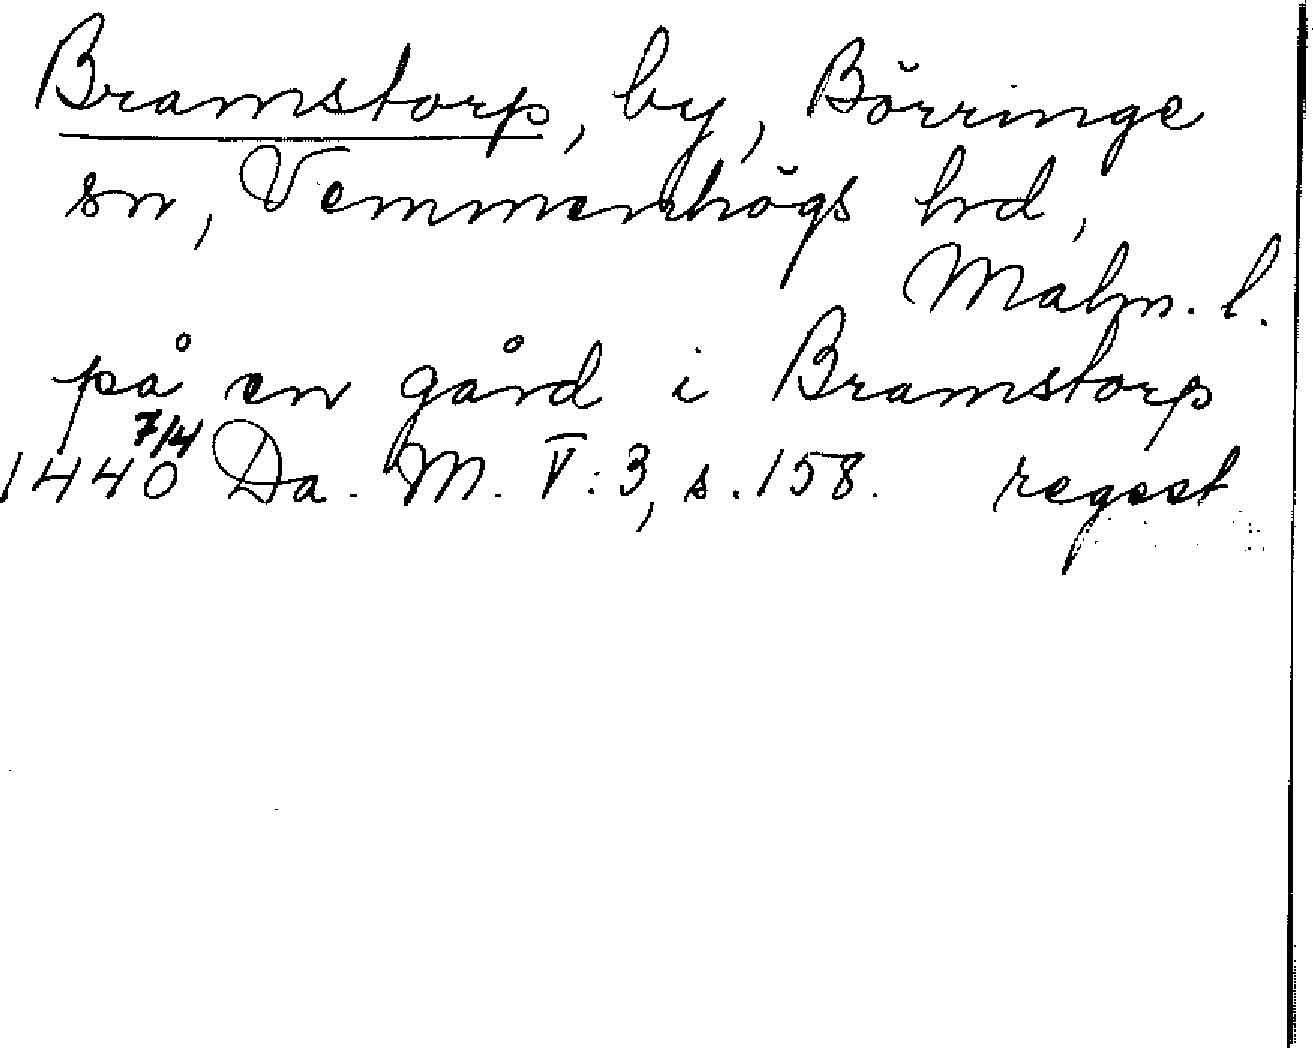 Bramstorp, by, Börringe
sn, Vemmenhögs hrd,
Malm. l.
på en gård i Bramstorp
1440 7/4 Da. M. V:3, s. 158. regest